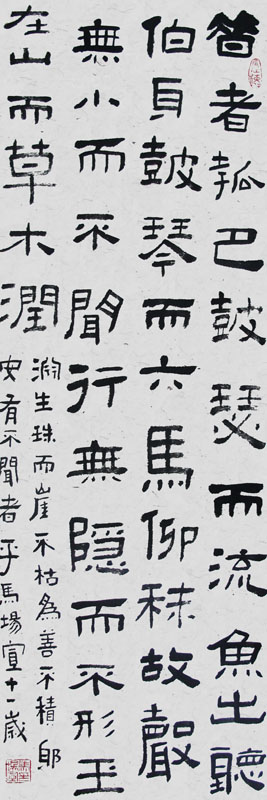 昔者瓠巴鼓瑟而流魚出聽
伯牙鼓琴而六馬仰秣故聲
無小而不聞行無隱而不形玉
在山而草木潤
淵生珠而崖不枯為善不積邪
安有不聞者乎馬場宣十一歲